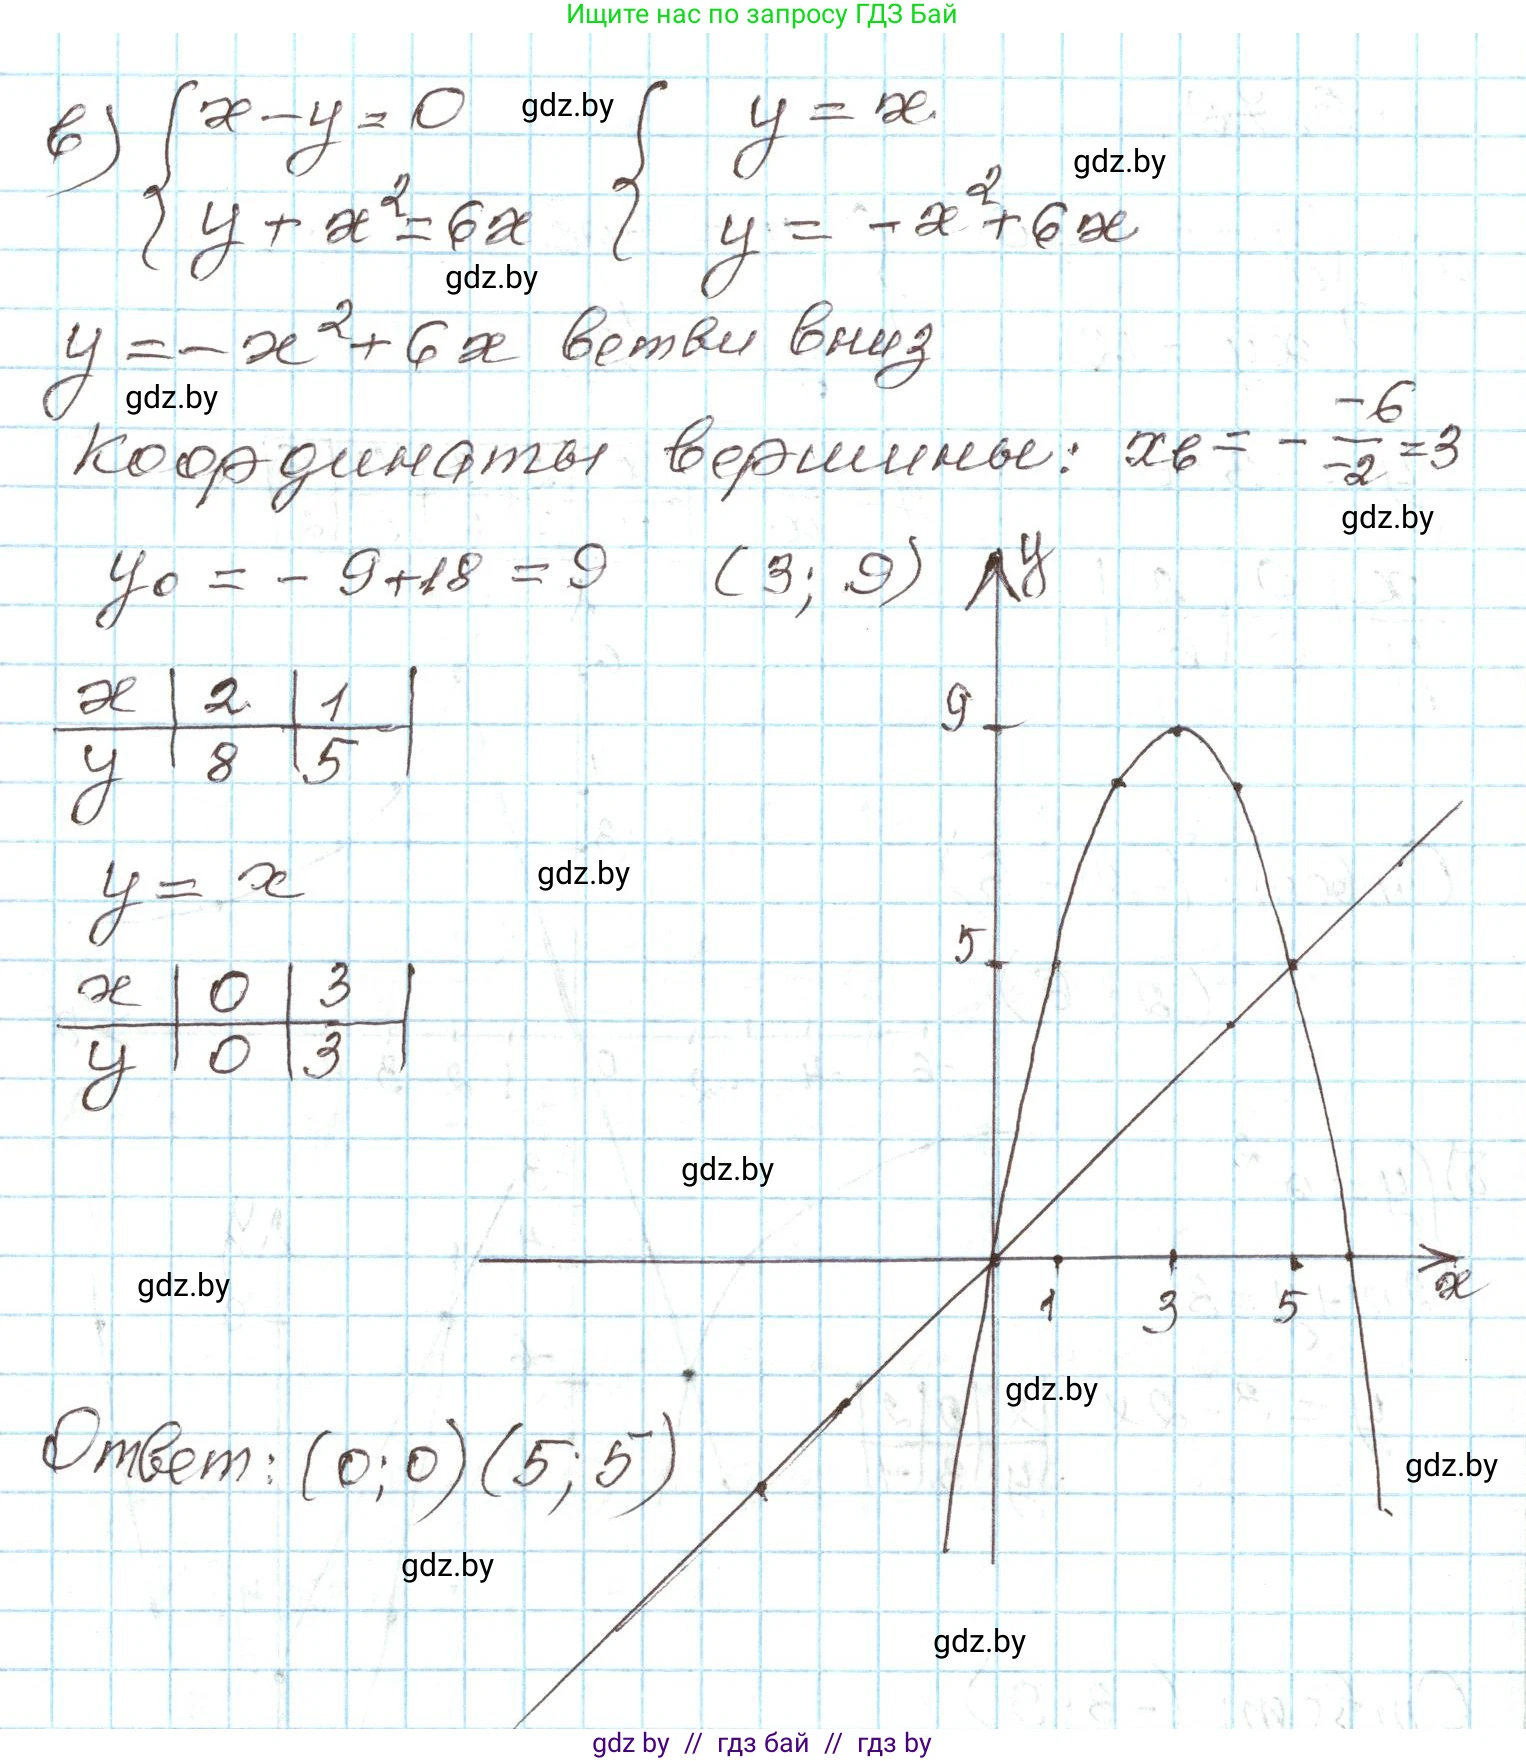 Ищите нас по запросу ГДЗ Бай
в) { x - y = 0 gdz.by { y = x
gdz.by
y + x² = 6x y = -x² + 6x
gdz.by
y = -x² + 6x ветви вниз
gdz.by
Координаты вершины: xв = - -6/-2 = 3
gdz.by
y₀ = - 9 + 18 = 9 (3; 9) y
x | 2 | 1 |
9
y | 8 | 5 |
y = x gdz.by
5
x | 0 | 3 |
y | 0 | 3 |
gdz.by
gdz.by 1 3 5 x
gdz.by
Ответ: (0; 0) (5; 5)
gdz.by
gdz.by
gdz.by
gdz by // гдз бай // гдз by